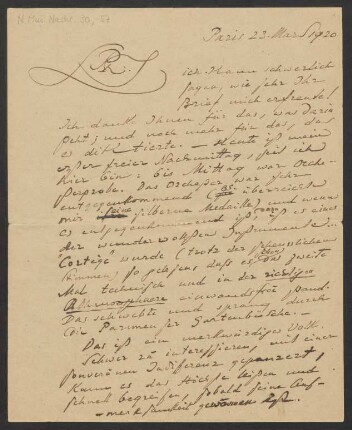 N. Mus. Nachl. 30, 
Paris 23. Mai 1920
ich Ihnen schwerlich
sagen, wie sehr Ihr
Brief mich erfreute!
Ich danke Ihnen für das, was darin
steht; und noch mehr für das, das
es diktierte. — Heute ist mein
erster freier Nachmittag, seit ich
hier bin: bis Mittag war Orche-
sterprobe. Das Orchester war sehr
entgegenkommend (es überreichte
mir eine silberne Medaille) und wenn
es entgegenkommend ist, ist es eines
der wundervollsten Instrumente.
"Cortège" wurde (trotz der
Stimmen) so gelesen, dass es das zweite
Mal technisch und in der richtigen
Atmosphaere einwandsfrei stand.
Das schwebte und sprang durch
die Parfumes der Gartenbüsche. —
Das ist ein merkwürdiges Volk.
Schwer zu interessieren, mit einer
souveränen Indifferenz gepanzert,
kann es das Höchste leisten und
schnell begreifen, sobald seine Auf-
merksamkeit gewonnen ist.